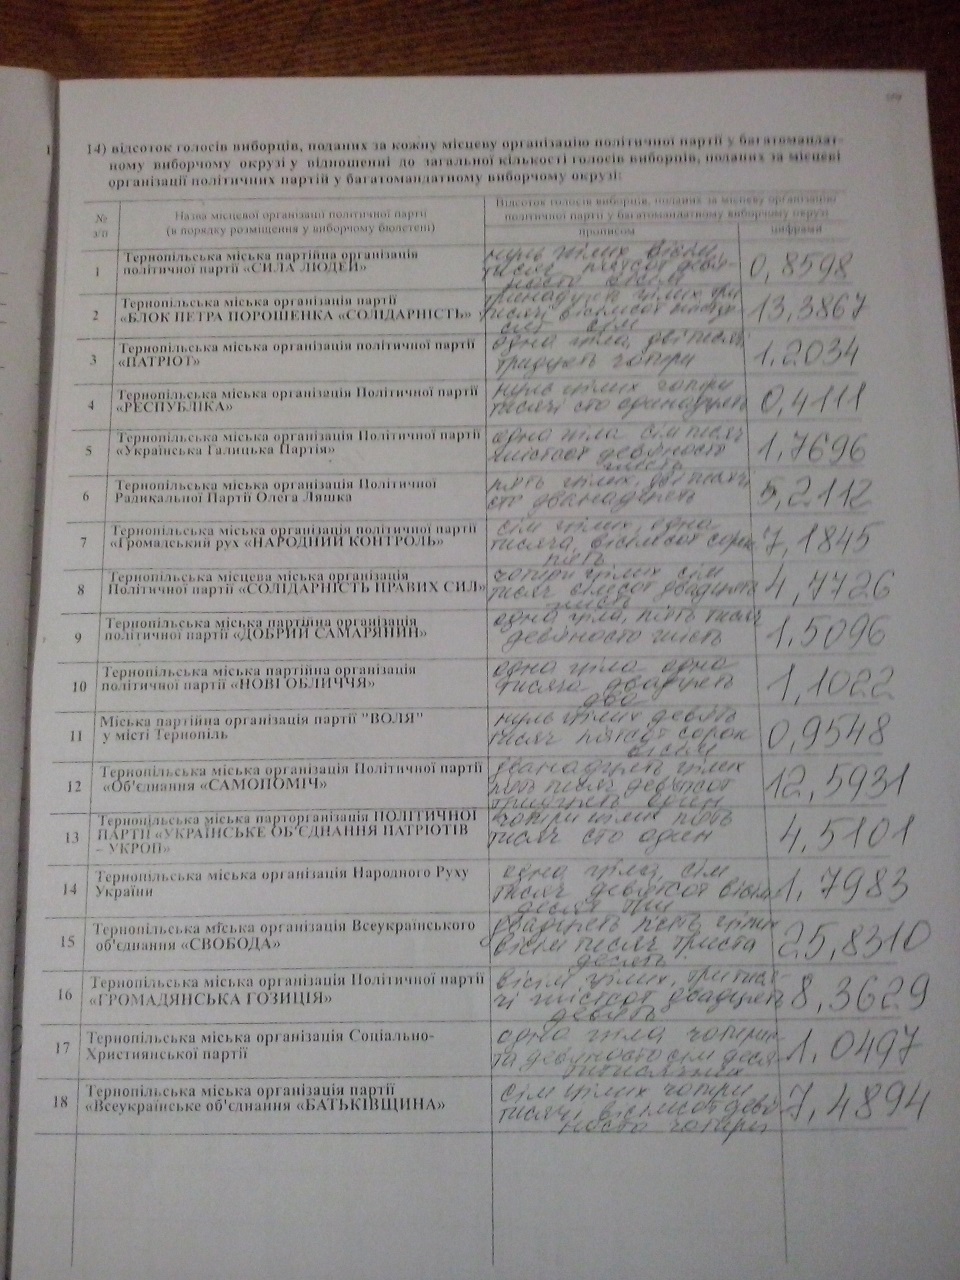 14) відсоток голосів виборців, поданих за кожну місцеву організацію політичної партії у багатомандат-
ному виборчому окрузі у відношенні до загальної кількості голосів виборців, поданих за місцеві
організації політичних партій у багатомандатному виборчому окрузі:
№ з/п
Назва місцевої організації політичної партії
(в порядку розміщення у виборчому бюлетені)
Відсоток голосів виборців, поданих за місцеву організацію
політичної партії у багатомандатному виборчому окрузі
прописом
цифрами
1
Тернопільська міська партійна організація
політичної партії «СИЛА ЛЮДЕЙ»
нуль цілих вісім
тисяч п'ятсот дев'я-
носто вісім
0,8598
2
Тернопільська міська організація партії
«БЛОК ПЕТРА ПОРОШЕНКА «СОЛІДАРНІСТЬ»
тринадцять цілих три
тисячі вісімсот шістде-
сят сім
13,3867
3
Тернопільська міська організація політичної партії
«ПАТРІОТ»
одна ціла, дві тисячі
тридцять чотири
1,2034
4
Тернопільська міська організація Політичної партії
«РЕСПУБЛІКА»
нуль цілих чотири
тисячі сто одинадцять
0,4111
5
Тернопільська міська організація Політичної партії
«Українська Галицька Партія»
одна ціла сім тисяч
шістсот дев'яносто
шість
1,7696
6
Тернопільська міська організація Політичної
Радикальної Партії Олега Ляшка
п'ять цілих, дві тисячі
сто дванадцять
5,2112
7
Тернопільська міська організація політичної партії
«Громадський рух «НАРОДНИЙ КОНТРОЛЬ»
сім цілих, одна
тисяча, вісімсот сорок
п'ять
7,1845
8
Тернопільська місцева міська організація
Політичної партії «СОЛІДАРНІСТЬ ПРАВИХ СИЛ»
чотири цілих сім
тисяч сімсот двадцять
шість
4,7726
9
Тернопільська міська партійна організація
політичної партії «ДОБРИЙ САМАРЯНИН»
одна ціла, п'ять тисяч
дев'яносто шість
1,5096
10
Тернопільська міська партійна організація
політичної партії «НОВІ ОБЛИЧЧЯ»
одна ціла одна
тисяча двадцять
два
1,1022
11
Міська партійна організація партії "ВОЛЯ"
у місті Тернопіль
нуль цілих дев'ять
тисяч п'ятсот сорок
вісім
0,9548
12
Тернопільська міська організація Політичної партії
«Об'єднання «САМОПОМІЧ»
дванадцять цілих
п'ять тисяч дев'ятсот
тридцять один
12,5931
13
Тернопільська міська парторганізація ПОЛІТИЧНОЇ
ПАРТІЇ «УКРАЇНСЬКЕ ОБ'ЄДНАННЯ ПАТРІОТІВ
– УКРОП»
чотири цілих п'ять
тисяч сто один
4,5101
14
Тернопільська міська організація Народного Руху
України
одна ціла, сім
тисяч дев'ятсот вісім
десят три
1,7983
15
Тернопільська міська організація Всеукраїнського
об'єднання «СВОБОДА»
двадцять п'ять цілих
вісім тисяч триста
десять
25,8310
16
Тернопільська міська організація Політичної партії
«ГРОМАДЯНСЬКА ПОЗИЦІЯ»
вісім цілих, три тися-
чі шістсот двадцять
дев'ять
8,3629
17
Тернопільська міська організація Соціально-
Християнської партії
одна ціла чотирис-
та дев'яносто сім деся-
титисячних
1,0497
18
Тернопільська міська організація партії
«Всеукраїнське об'єднання «БАТЬКІВЩИНА»
сім цілих чотири
тисячі вісімсот дев'я-
носто чотири
7,4894